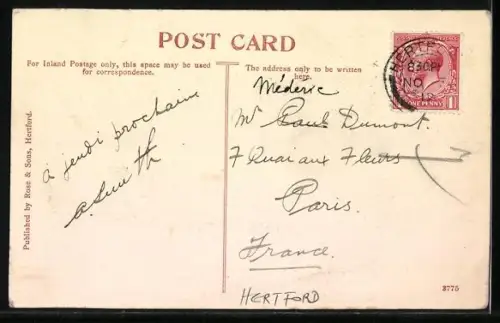 POST CARD
For Inland Postage only, this space may be used
for correspondence.
The address only to be written
here.
à jeudi prochain
A. Smith
Médéric
Mr Paul Dumont.
7 Quai aux Fleurs
Paris.
France.
HERTFORD
Published by Rose & Sons, Hertford.
3775
HERTF
8 30 PM
NO
12
ONE PENNY